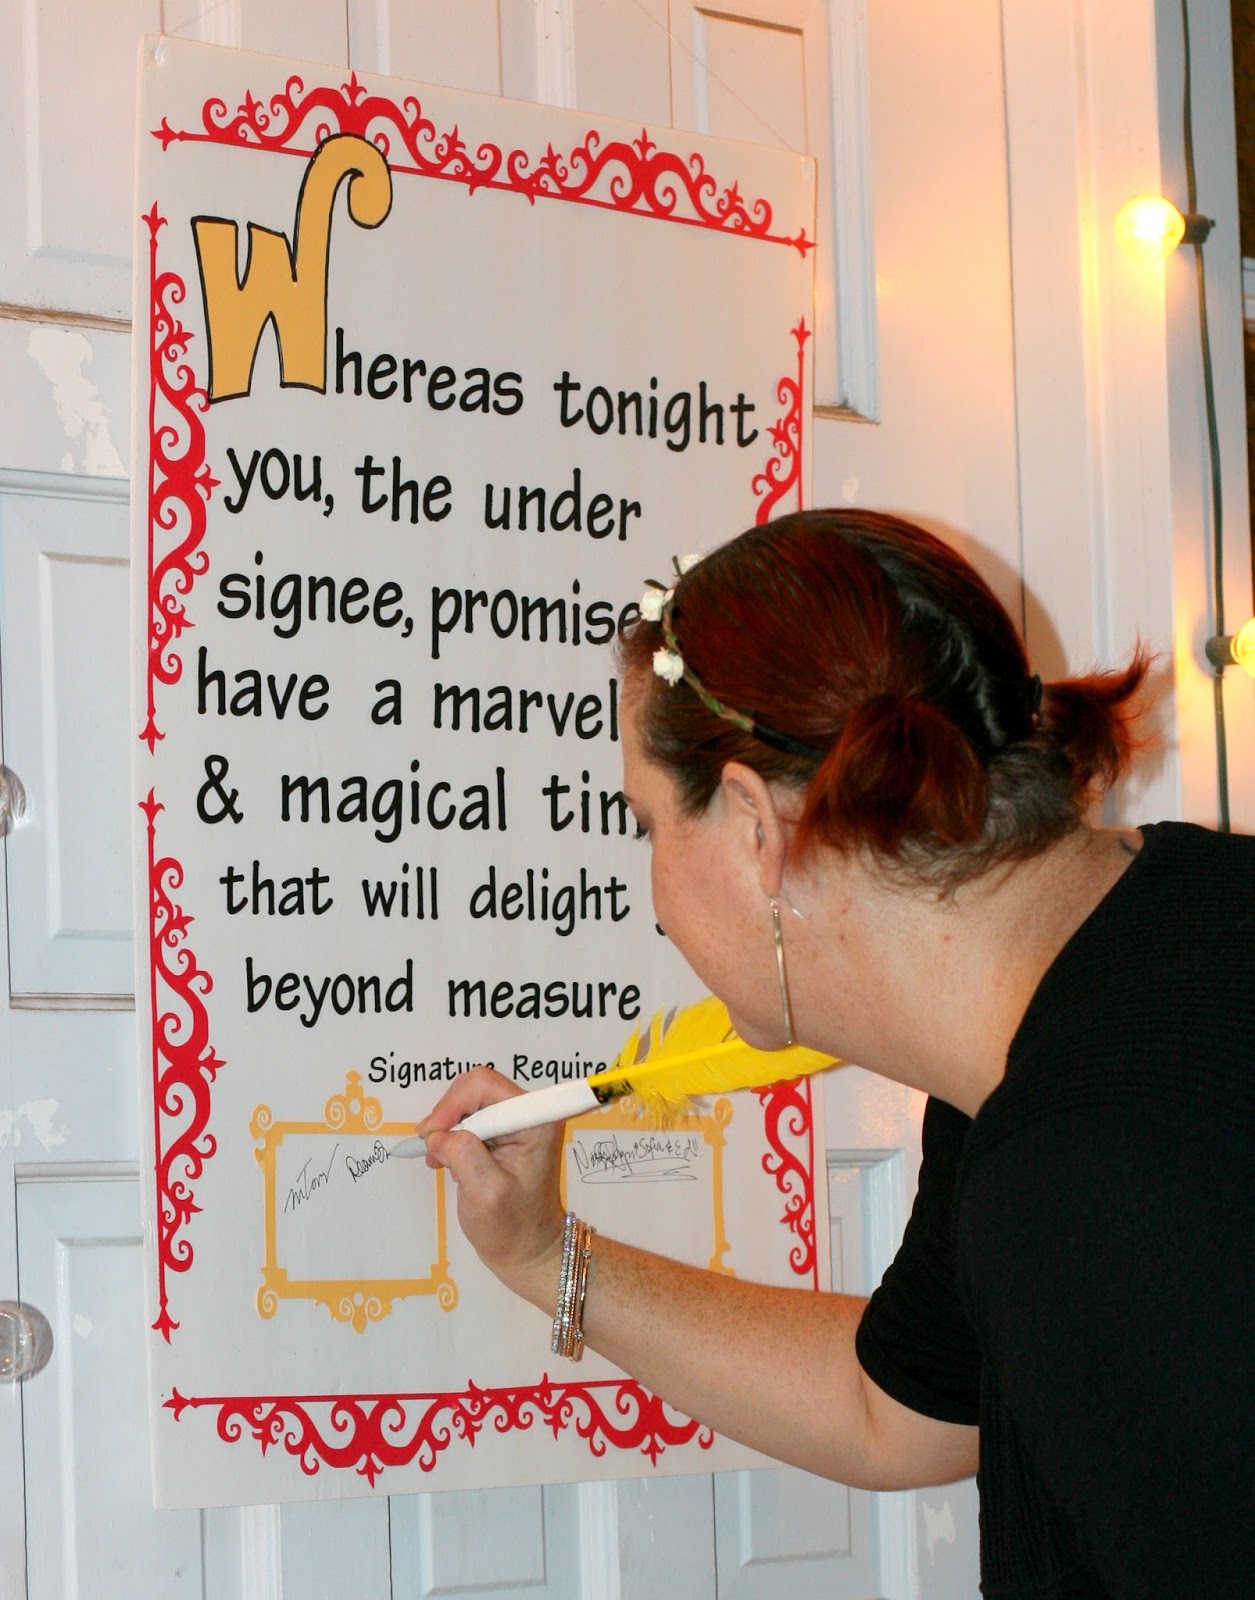 Whereas tonight
you, the under
signee, promise
have a marvel
& magical tim
that will delight
beyond measure
Signature Require